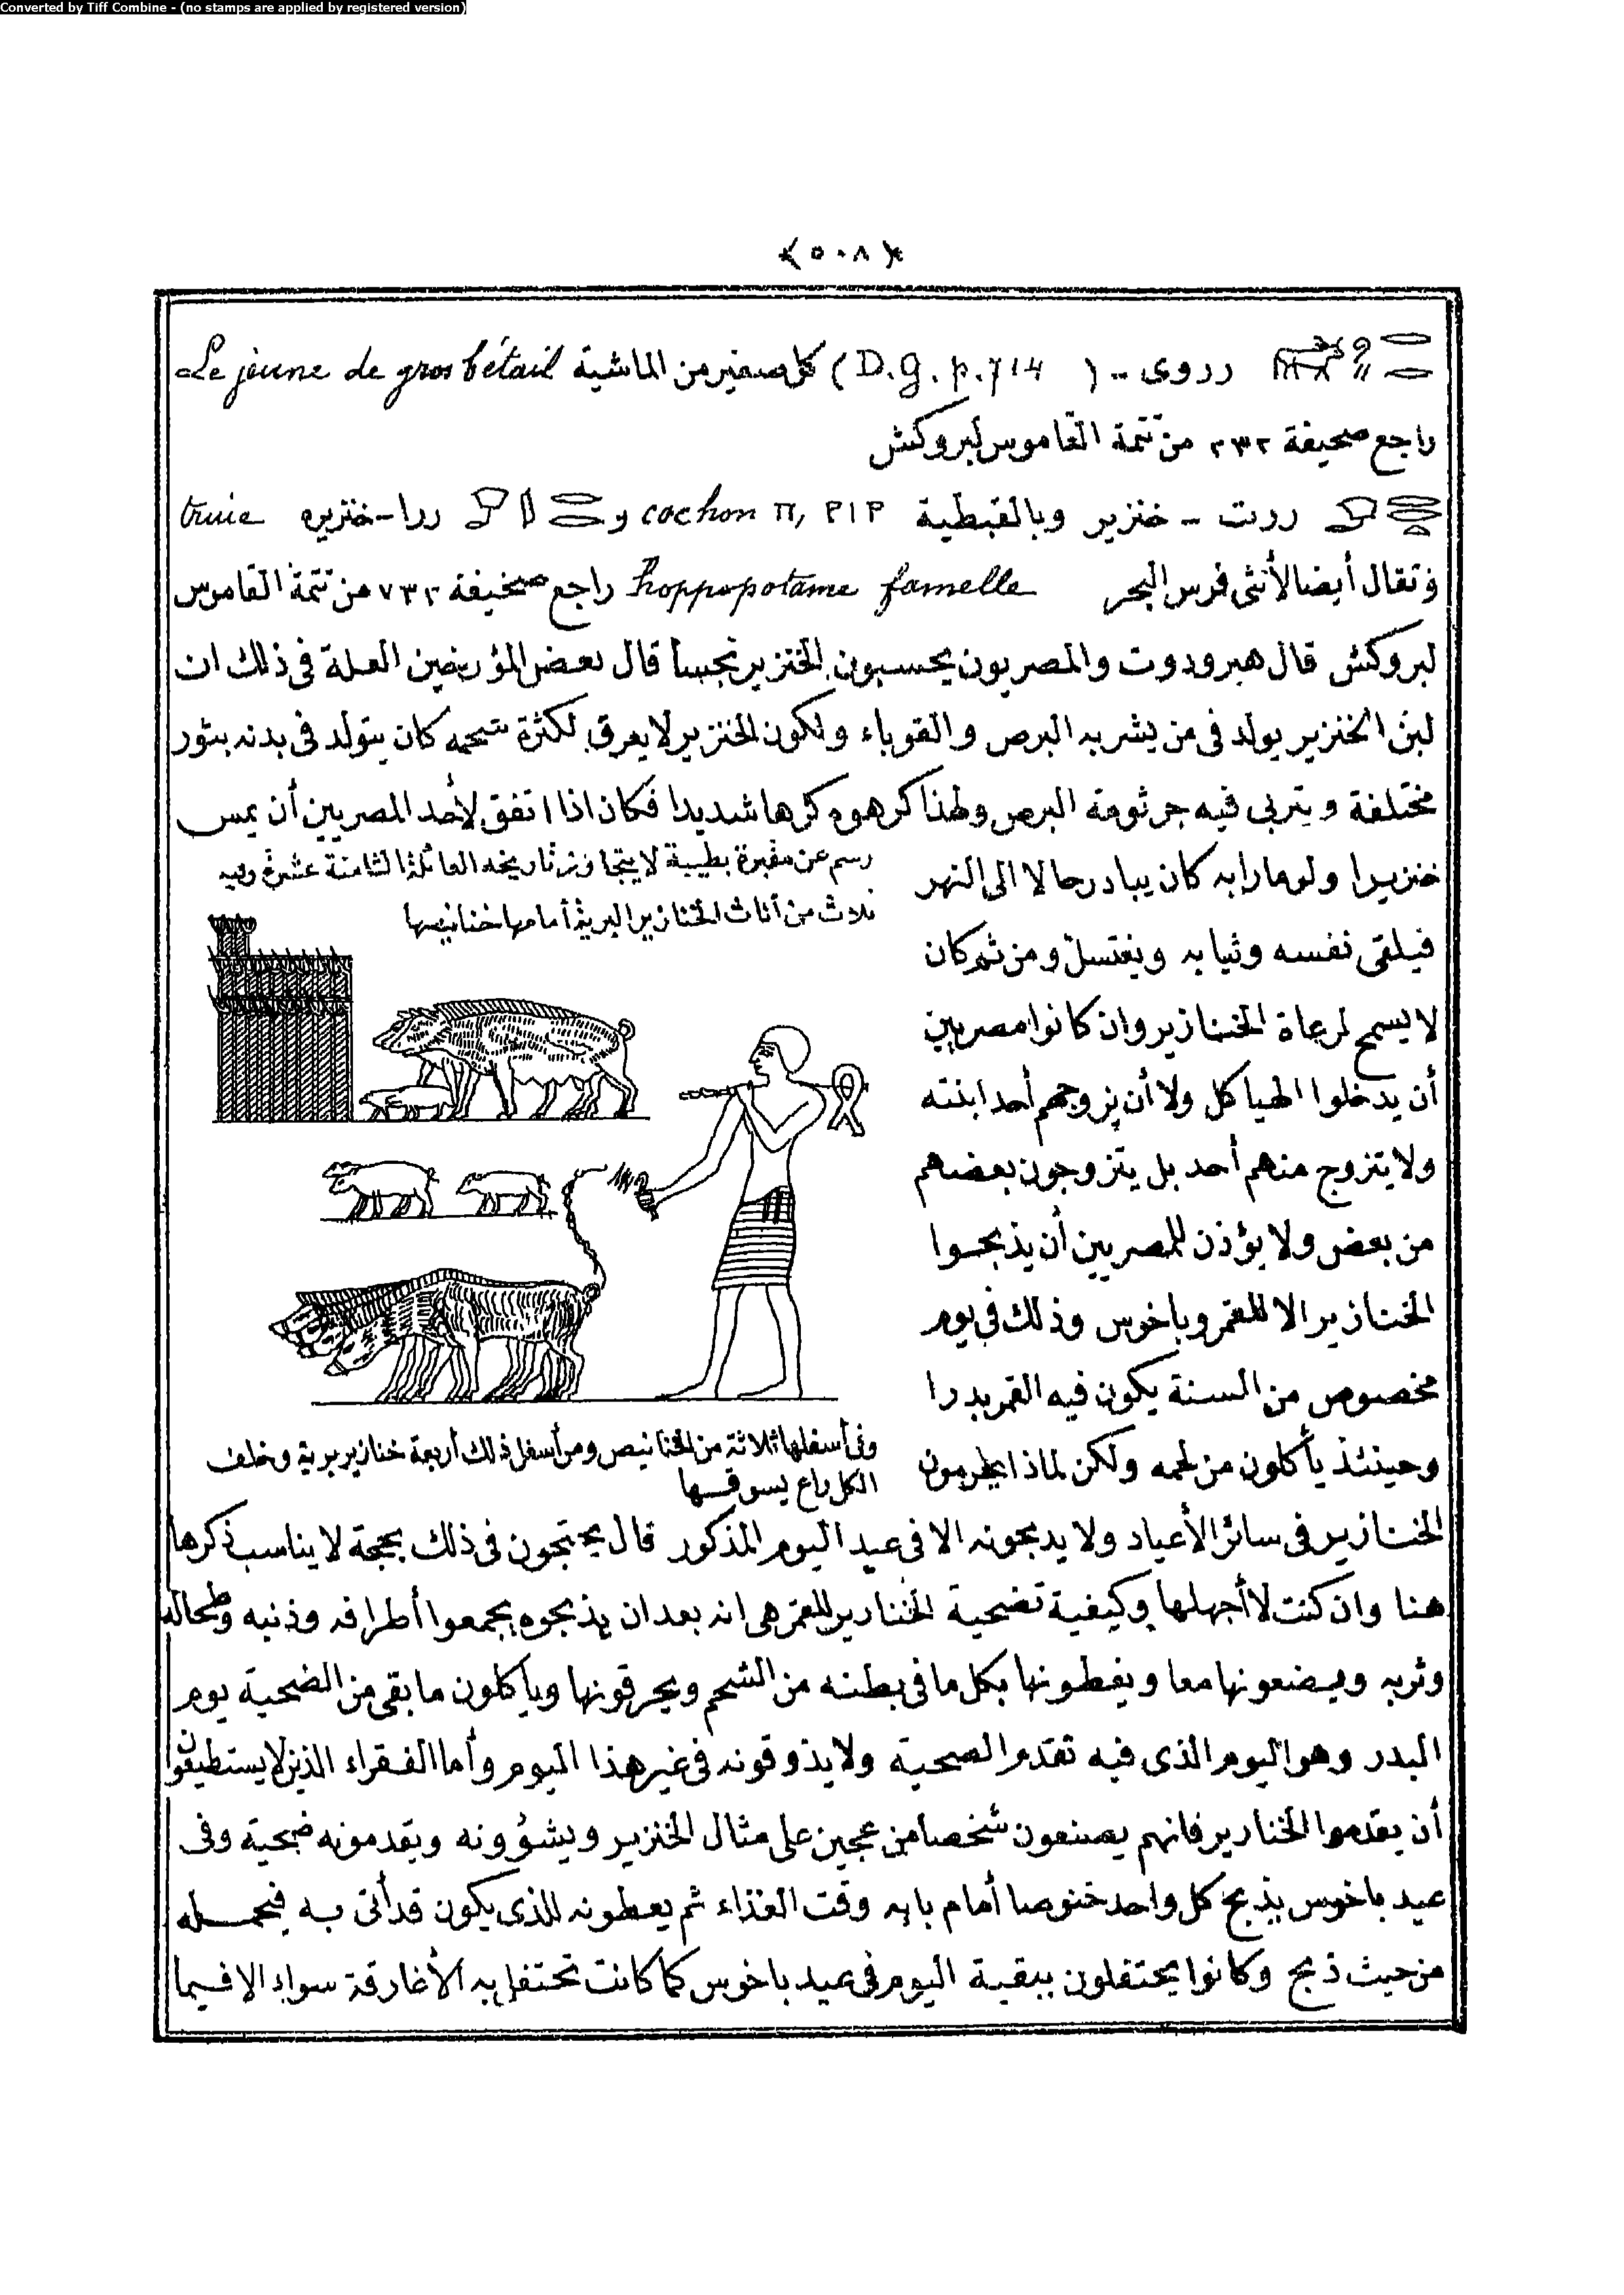 Converted by Tiff Combine - (no stamps are applied by registered version)
﴿٥٠٨﴾
رروى - (D.g. p. 714) كل صغير من الماشية Le jeune de gros bétail
راجع صحيفة ٧٣٢ من تتمة القاموس لبروكش
ررت - خنزير وبالقبطية cochon π, ΡΙΡ و ررا - خنزيره truie
وتقال أيضا لأنثى فرس البحر hoppopotame famelle راجع صحيفة ٧٣٢ من تتمة القاموس
لبروكش قال هيرودوت والمصريون يحسبون الخنزير نجسا قال بعض المؤرخين العلة فى ذلك ان
لبن الخنزير يولد فى من يشربه البرص والقوباء ولكون الخنزير لا يعرق لكثرة شحمه كان يتولد فى بدنه بثور
مختلفة ويتربى فيه جرثومة البرص ولهذا كرهوه كرها شديدا فكان اذا اتفق لأحد المصريين أن يمس
خنزيرا ولو مارا به كان يبادر حالا الى النهر
فيلقى نفسه وثيابه ويغتسل ومن ثم كان
لا يسمح لرعاة الخنازير وان كانوا مصريين
أن يدخلوا الهياكل ولا أن يزوجهم أحد ابنته
ولا يتزوج منهم أحد بل يتزوجون بعضهم
من بعض ولا يؤذن للمصريين أن يذبحوا
الخنازير الا للقمر وباخوس وذلك فى يوم
مخصوص من السنة يكون فيه القمر بدرا
وحينئذ يأكلون من لحمه ولكن لماذا يحرمون
رسم عن مقبرة بطيبة لا يتجاوز تاريخه العائلة الثامنة عشرة وفيه
ثلاث من أناث الخنازير البرية أمامها خنانيصها
وفى أسفلها ثلاثة من الخنانيص ومن أسفل ذلك أربعة خنازير برية وخلف
الكل راع يسوقها
الخنازير فى سائر الأعياد ولا يدبحونه الا فى عيد اليوم المذكور قال يحتجون فى ذلك بحجة لا يناسب ذكرها
هنا وان كنت لا أجهلها وكيفية تضحية الخنازير للقمر هى انه بعد ان يذبحوه يجمعوا أطرافه وذنبه وطحاله
وثربه ويضعونها معا ويغطونها بكل ما فى بطنه من الشحم ويحرقونها ويأكلون ما بقى من الضحية يوم
البدر وهو اليوم الذى فيه تقدم الضحية ولا يذوقونه فى غير هذا اليوم وأما الفقراء الذين لا يستطيعون
أن يقدموا الخنازير فانهم يصنعون شخصا من عجين على مثال الخنزير ويشوونه ويقدمونه ضحية وفى
عيد باخوس يذبح كل واحد خنوصا أمام بابه وقت الغذاء ثم يعطونه للذى يكون قد أتى به فيحمله
من حيث ذبح وكانوا يحتفلون ببقية اليوم فى عيد باخوس كما كانت تحتفل به الأغارقة سواء الا فيما